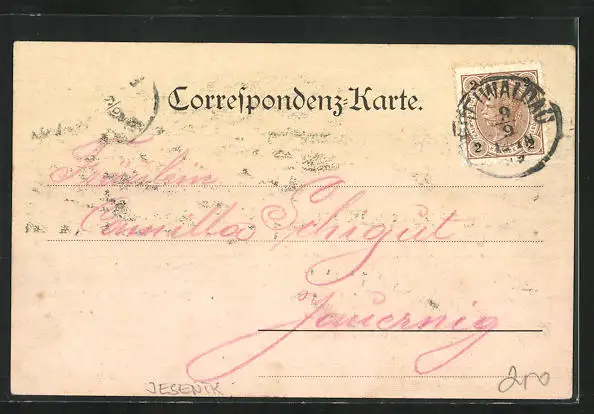 Correspondenz-Karte.
2
FREIWALDAU
9
9
2 2
Fräulein
Camilla Schigut
Jauernig
JESENIK
200